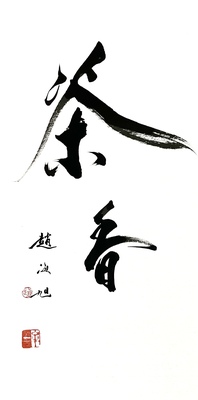 茶香
趙海旭